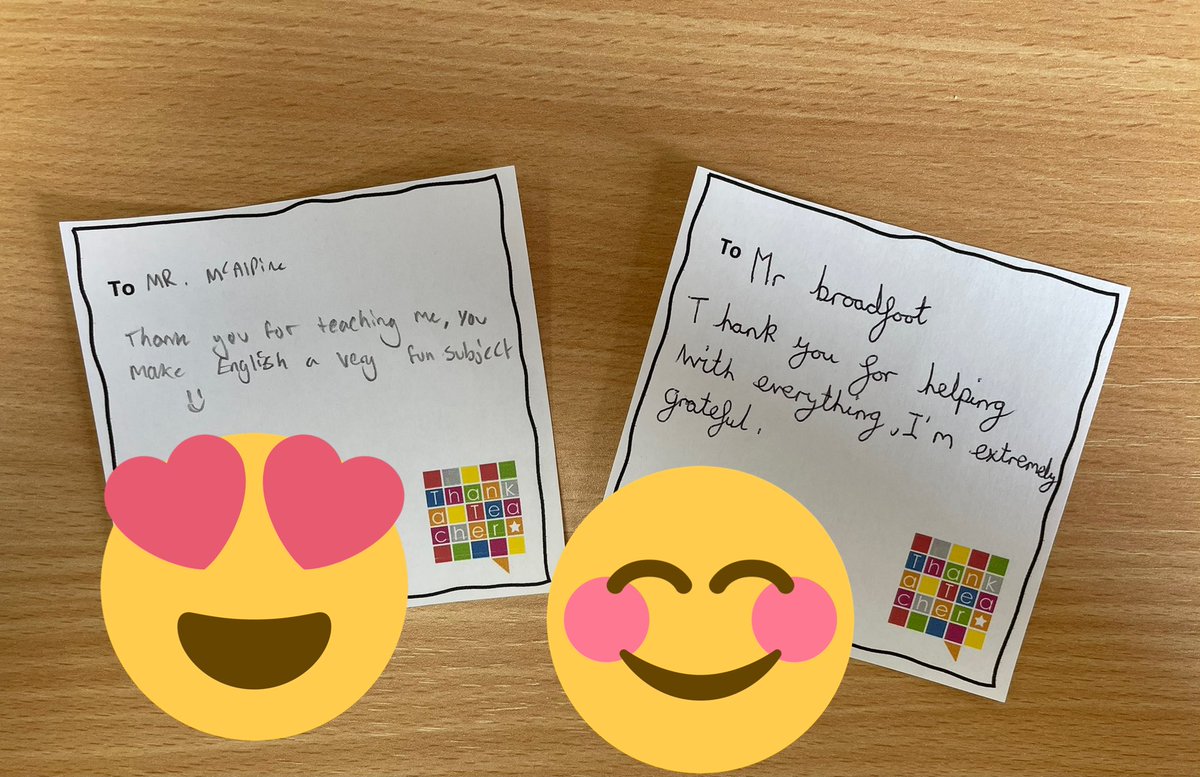 To MR. McAlpine
Thank you for teaching me, you
make English a very fun subject
Thank
a Tea
cher
To Mr broadfoot
Thank you for helping
with everything, I'm extremely
grateful.
Thank
a Tea
cher